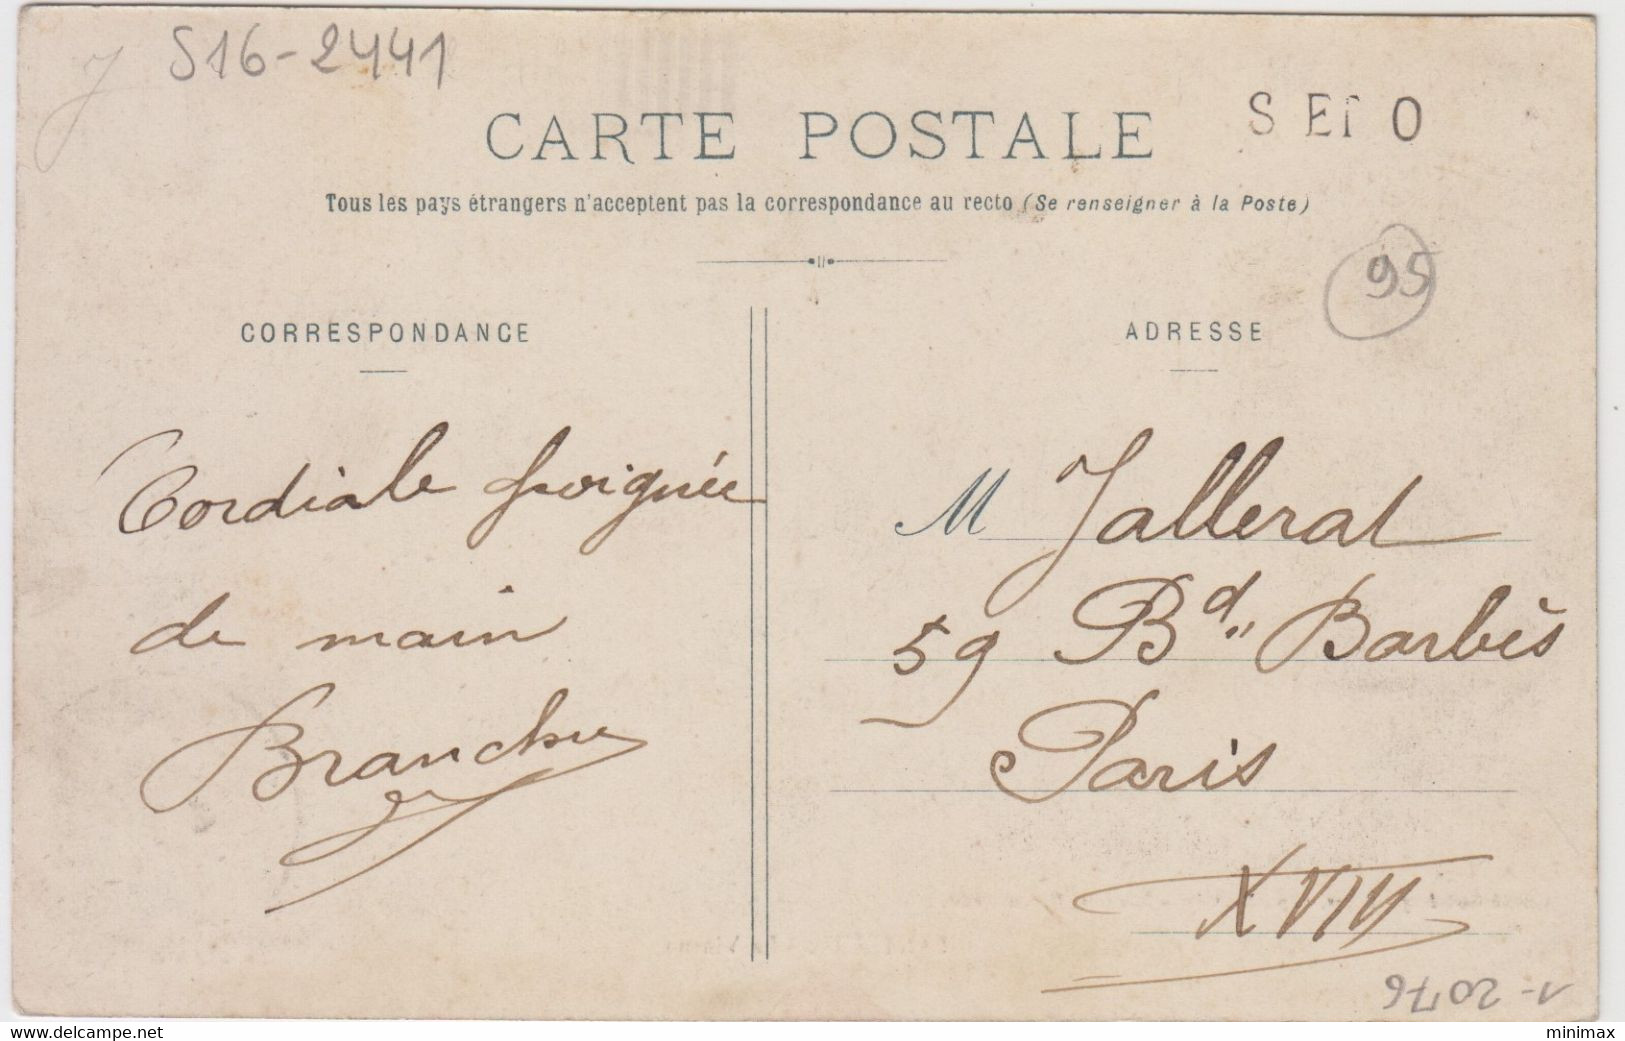 S16-2441
CARTE POSTALE
Tous les pays étrangers n'acceptent pas la correspondance au recto (Se renseigner à la Poste)
95
CORRESPONDANCE
Cordiale poignée
de main
ADRESSE
M Jallerat
59 Bd. Barbès
Paris
XVIII
1-2076
www.delcampe.net
minimax